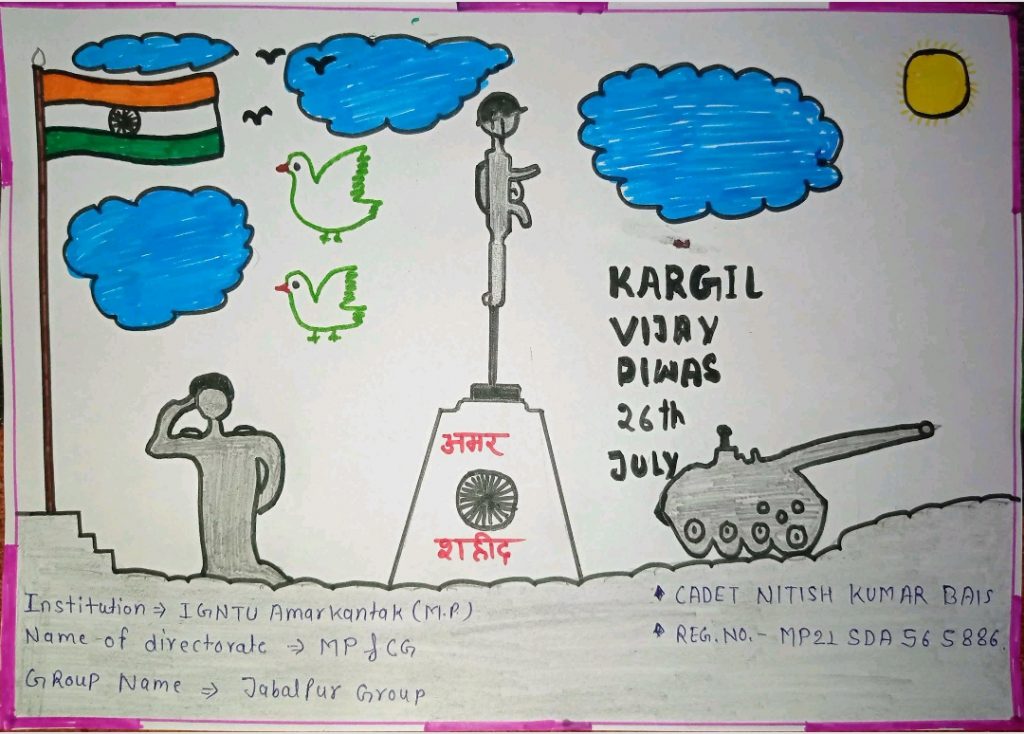 KARGIL
VIJAY
DIWAS
26th
JULY
अमर
शहीद
Institution → IGNTU Amarkantak (M.P.)
Name of directorate → MP & CG
GROUP Name → Jabalpur Group
CADET NITISH KUMAR BAIS
REG. NO. - MP21 SDA 565886